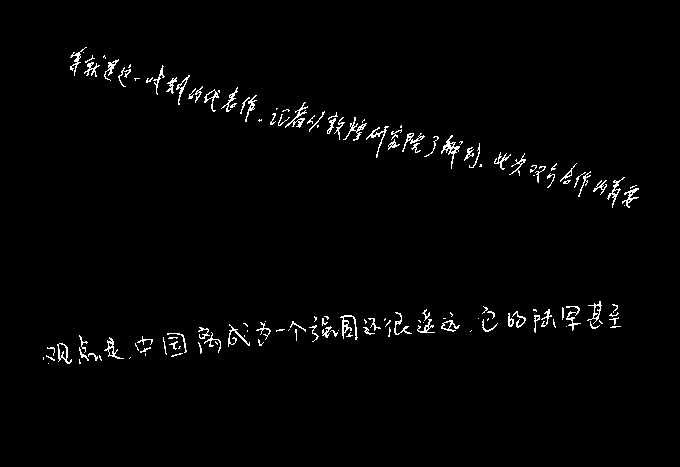 等就是这一时期的代表作。记者从敦煌研究院了解到，此次双方合作的首要
观点是，中国离成为一个强国还很遥远，它的陆军甚至